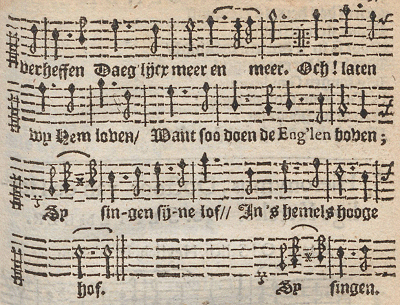 verheffen Daeg'lijcx meer en meer. Och! laten
wy Hem loven/ Want soo doen de Eng'len boven;
Sy sin-gen sij-ne lof// In's hemels hooge
hof. Sy singen.